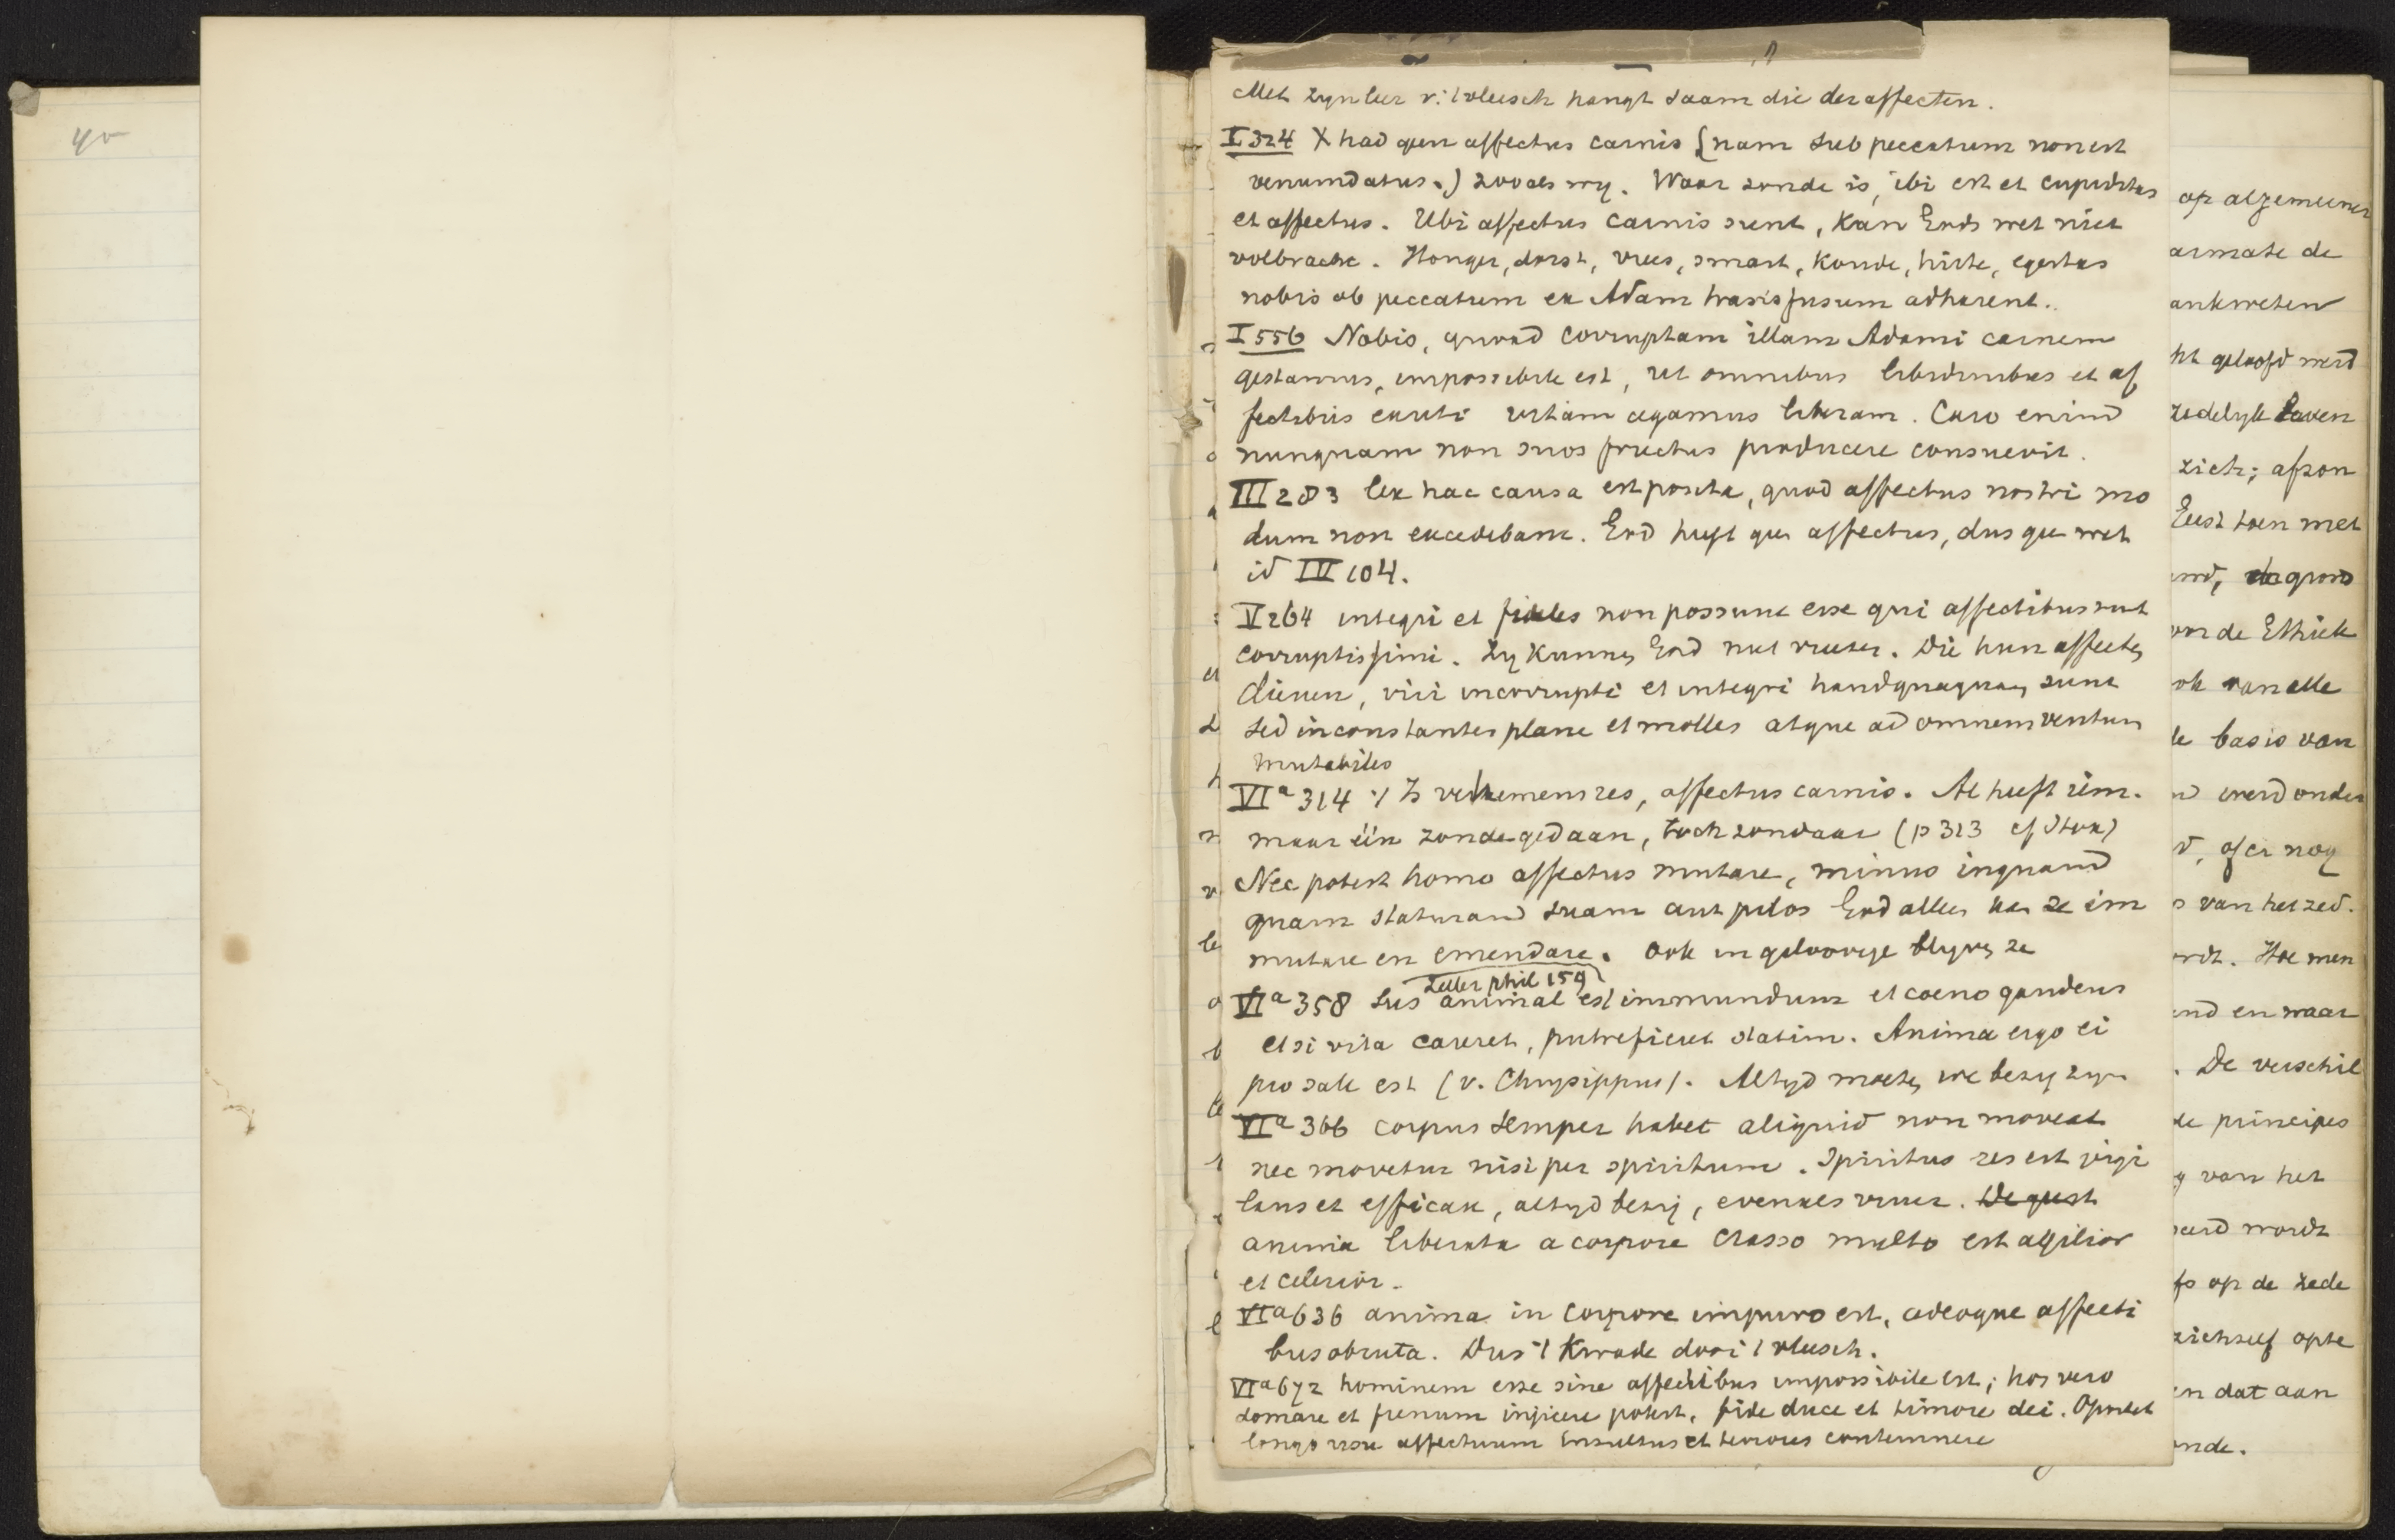 40
Met zyn leer v. 't vleesch hangt saam die der affecten.
I 324 X had geen affectus carnis (nam sub peccatum non est
venumdatus.) zooals wy. Waar zonde is, ibi est et cupiditas
et affectus. Ubi affectus carnis sunt, kan Gods wet niet
volbracht. Honger, dorst, vrees, smart, koude, hitte, egestas
nobis ob peccatum ex Adam transfusum adhaerent.
I 556 Nobis, quoad corruptam illam Adami carnem
gestamus, impossibile est, ut omnibus libidinibus et af
fectibus exuti vitam agamus liberam. Caro enim
nunquam non suos fructus producere consuevit.
III 283 lex hac causa est posita, quod affectus nostri mo
dum non excedebant. God heeft geen affectus, dus geen wet
id IV 104.
V 264 integri et fideles non possunt esse qui affectibus sunt
corruptissimi. Zy kunnen God niet vreezen. Die hun affecten
dienen, viri incorrupti et integri haudquaquam sunt
sed inconstantes plane et molles atque ad omnem ventum
mutabiles
VIa 314 't Is vehemens res, affectus carnis. Al heeft iem.
maar één zonde gedaan, toch zondaar (p 313 cf Stoa)
Nec potest homo affectus mutare, minus inquam
quam staturam suam aut pilos God alleen kan ze im
mutare en emendare. Ook in geloovige blyven ze
Zeller phil 159
VIa 358 Sus animal est immundum et coeno gaudens
et si vita careret, putrefieret statim. Anima ergo ei
pro sale est (v. Chrysippus). Altyd moeten we bezig zyn
VIa 366 corpus semper habet aliquid non moveat
nec movetur nisi per spiritum. Spiritus res est vigi
lans et efficax, altyd bezig, evenals vuur. De geest
anima liberata a corpore crasso multo est agilior
et celerior.
VIa 636 anima in corpore impuro est, adeoque affecti
bus obruta. Dus 't kwade door 't vleesch.
VIa 672 hominem esse sine affectibus impossibile est; hos vero
domare et frenum injicere potest, fide duce et timore dei. Oportet
longo usu affectuum insultus et terrores contemnere
op algemeener
armate de
ankweten
ht geloofd werd
zedelyk leven
zich; afzon
Eerst toen met
de grond
de Ethiek
ok van alle
de basis van
werd onder
d, of er nog
s van het zed.
ordt. Hoe men
end en waar
. De verschil
de principes
g van het
eerd wordt
fs op de zede
zichzelf opte
en dat aan
onde.